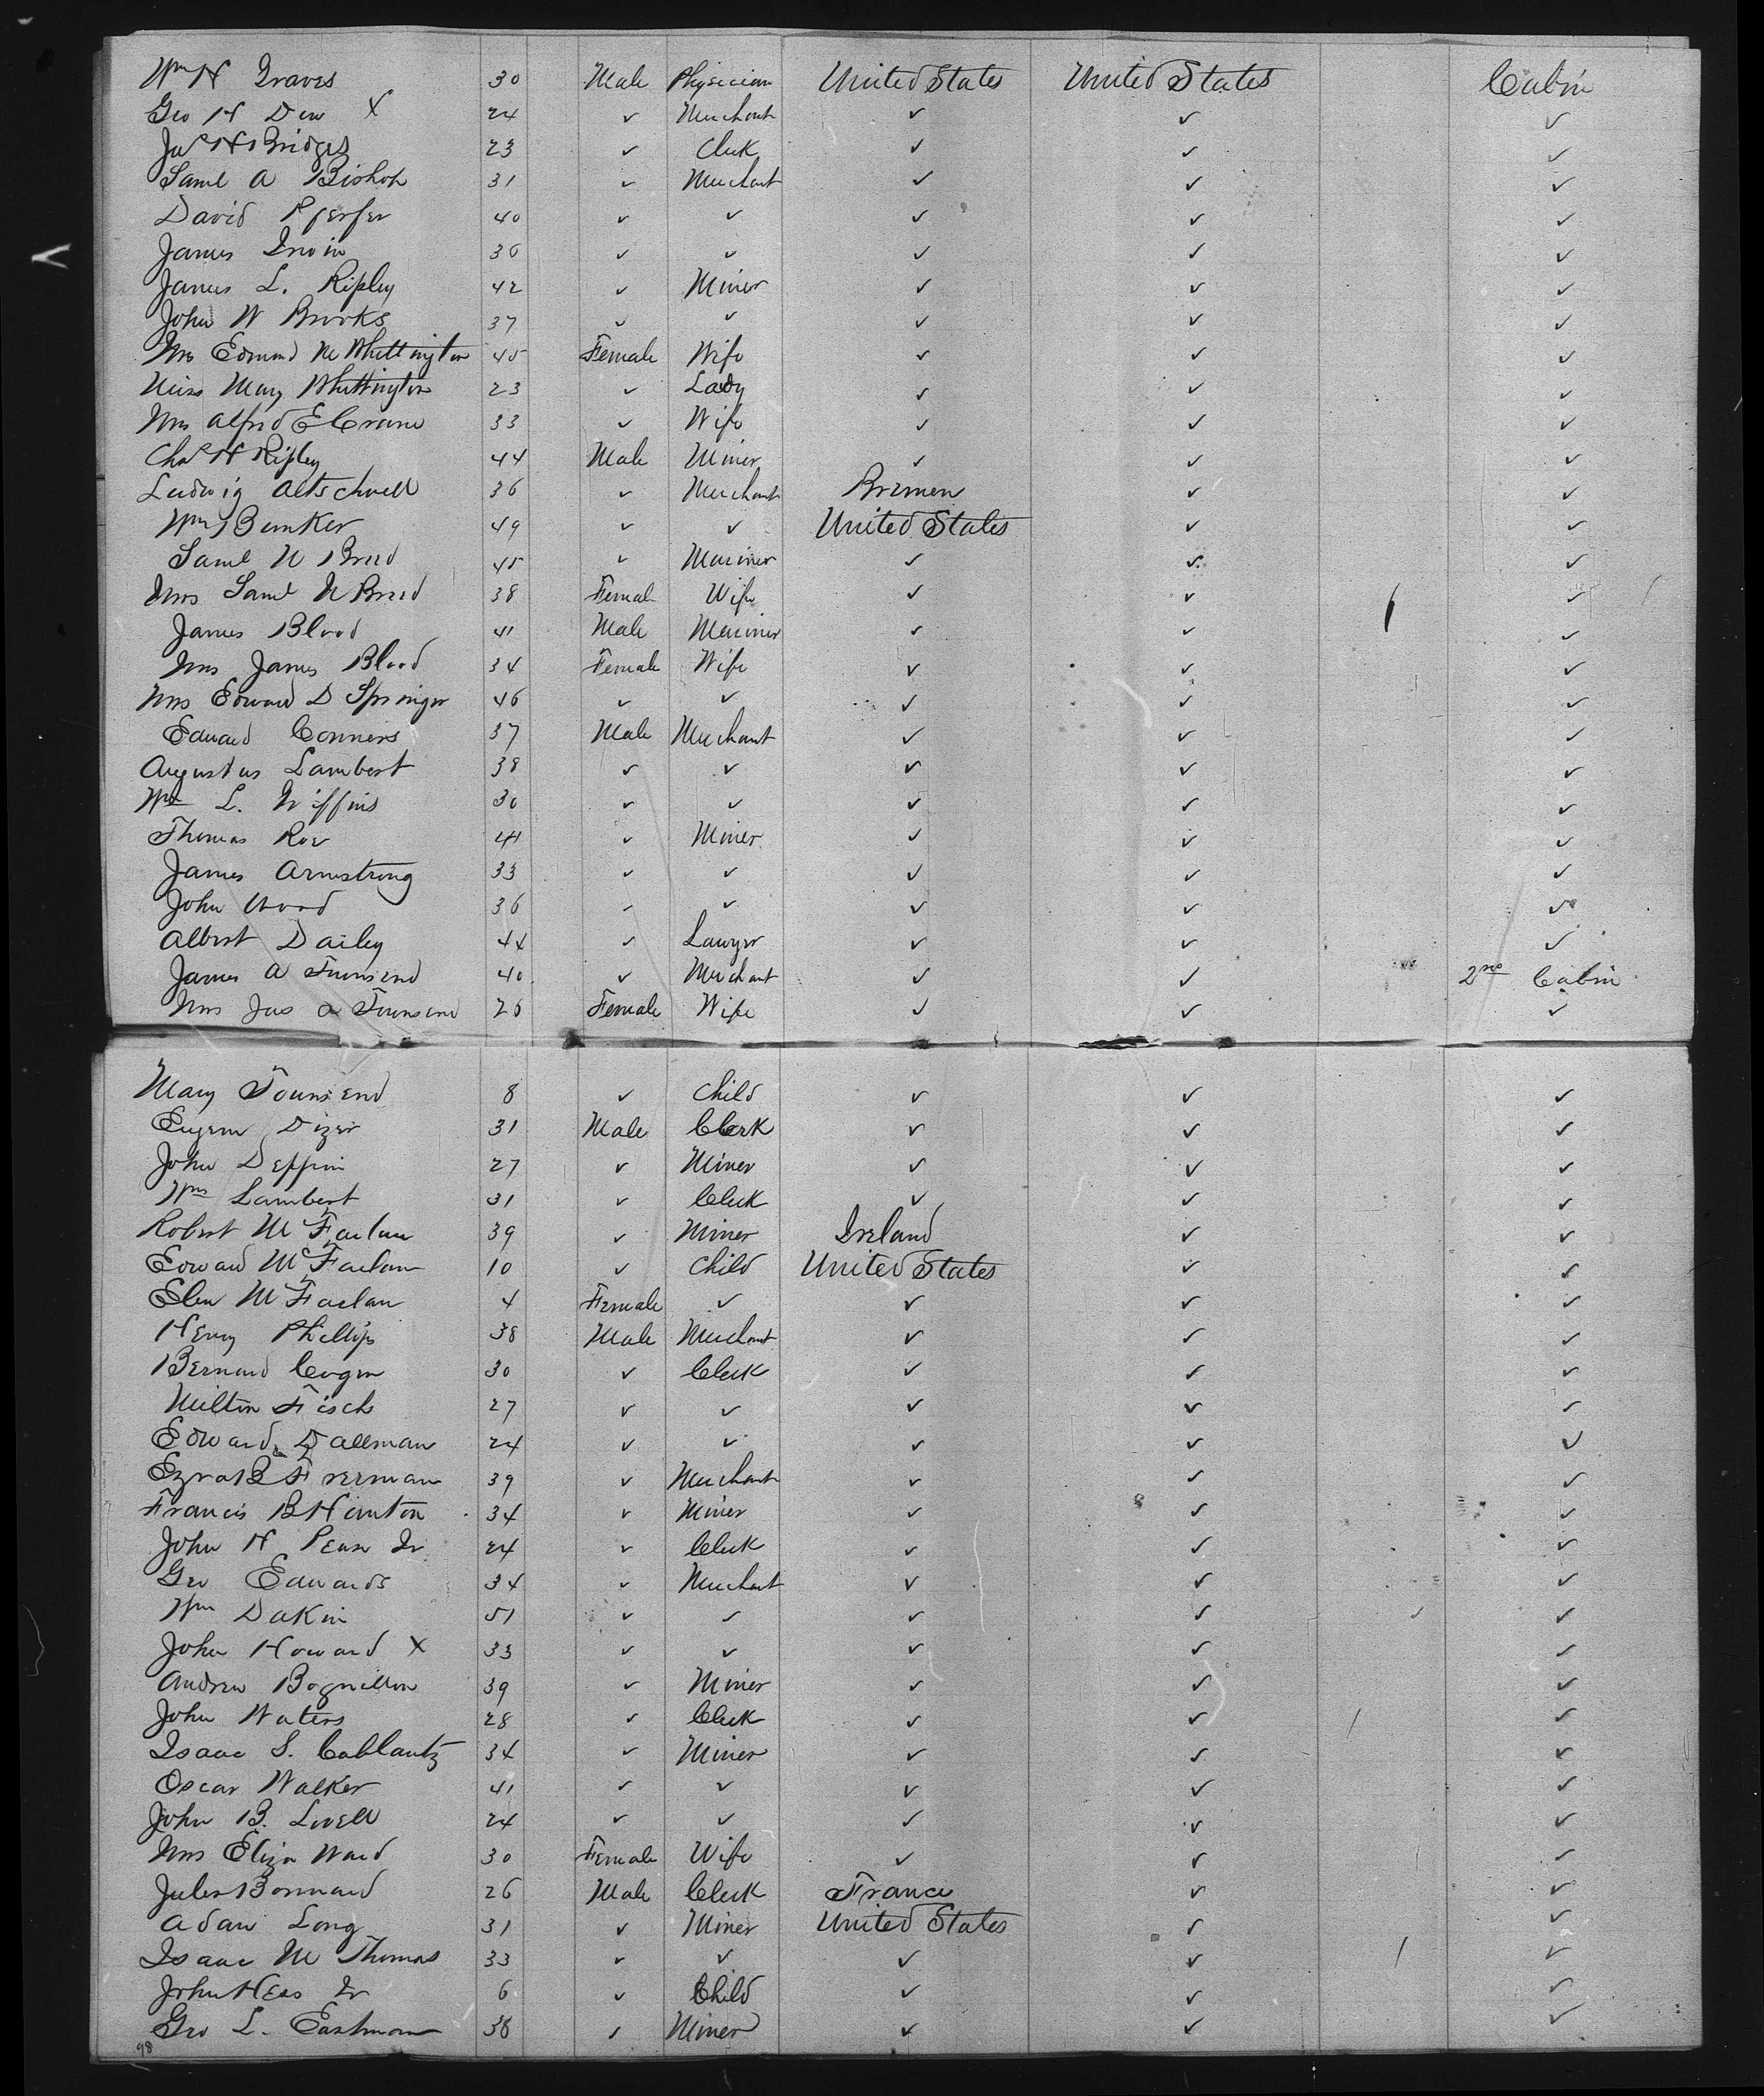 Wm H Graves 30 Male Physician United States United States Cabin
Geo H Dew X 24 ✓ Merchant ✓ ✓ ✓
Jas H Bridges 23 ✓ Clerk ✓ ✓ ✓
Saml A Bishop 31 ✓ Merchant ✓ ✓ ✓
David 40 ✓ ✓ ✓ ✓ ✓
James Irwin 36 ✓ ✓ ✓ ✓ ✓
James L. Ripley 42 ✓ Miner ✓ ✓ ✓
John W Brooks 37 ✓ ✓ ✓ ✓ ✓
Mrs Edmund M Whittington 45 Female Wife ✓ ✓ ✓
Miss Mary Whittington 23 ✓ Lady ✓ ✓ ✓
Mrs Alfred E Crane 33 ✓ Wife ✓ ✓ ✓
Chas H Ripley 44 Male Miner ✓ ✓ ✓
Ludwig Altschuell 36 ✓ Merchant Bremen ✓ ✓
Wm Bunker 49 ✓ ✓ United States ✓ ✓
Saml N Breed 45 ✓ Mariner ✓ ✓ ✓
Mrs Saml N Breed 38 Female Wife ✓ ✓ ✓
James Blood 41 Male Mariner ✓ ✓ ✓
Mrs James Blood 34 Female Wife ✓ ✓ ✓
Mrs Edward D Springer 46 ✓ ✓ ✓ ✓ ✓
Edward Conners 37 Male Merchant ✓ ✓ ✓
Augustus Lambert 38 ✓ ✓ ✓ ✓ ✓
Wm L. 30 ✓ ✓ ✓ ✓ ✓
Thomas Roe 41 ✓ Miner ✓ ✓ ✓
James Armstrong 33 ✓ ✓ ✓ ✓ ✓
John Wood 36 ✓ ✓ ✓ ✓ ✓
Albert Dailey 44 ✓ Lawyer ✓ ✓ ✓
James A Townsend 40 ✓ Merchant ✓ ✓ 2nd Cabin
Mrs Jas A Townsend 26 Female Wife ✓ ✓ ✓
Mary Townsend 8 ✓ Child ✓ ✓ ✓
Eugene Dizer 31 Male Clerk ✓ ✓ ✓
John Deppin 27 ✓ Miner ✓ ✓ ✓
Wm Lambert 31 ✓ Clerk ✓ ✓ ✓
Robert McFarlan 39 ✓ Miner Ireland ✓ ✓
Edward McFarlan 10 ✓ Child United States ✓ ✓
Ellen McFarlan 4 Female ✓ ✓ ✓ ✓
Henry Phillips 38 Male Merchant ✓ ✓ ✓
Bernard Cogen 30 ✓ Clerk ✓ ✓ ✓
Milton Fisch 27 ✓ ✓ ✓ ✓ ✓
Edward Dallman 24 ✓ ✓ ✓ ✓ ✓
Ezra B Freeman 39 ✓ Merchant ✓ ✓ ✓
Francis B Hinton 34 ✓ Miner ✓ ✓ ✓
John H Pease Jr 24 ✓ Clerk ✓ ✓ ✓
Geo Edwards 34 ✓ Merchant ✓ ✓ ✓
Wm Dakin 51 ✓ ✓ ✓ ✓ ✓
John Howard X 33 ✓ ✓ ✓ ✓ ✓
Andrew 39 ✓ Miner ✓ ✓ ✓
John Waters 28 ✓ Clerk ✓ ✓ ✓
Isaac S. Coblantz 34 ✓ Miner ✓ ✓ ✓
Oscar Walker 41 ✓ ✓ ✓ ✓ ✓
John B. Lovell 24 ✓ ✓ ✓ ✓ ✓
Mrs Eliza Ward 30 Female Wife ✓ ✓ ✓
Jules Bonnard 26 Male Clerk France ✓ ✓
Adam Long 31 ✓ Miner United States ✓ ✓
Isaac M Thomas 33 ✓ ✓ ✓ ✓ ✓
John Hess Jr 6 ✓ Child ✓ ✓ ✓
Geo L. Eastman 38 ✓ Miner ✓ ✓ ✓
98